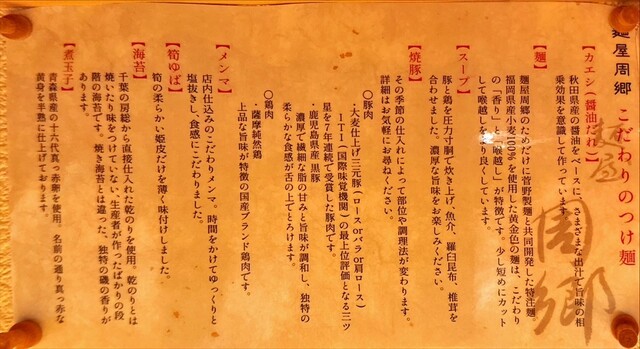 麺屋周郷 こだわりのつけ麺
【カエシ(醤油だれ)】
秋田県産の醤油をベースに、さまざまな出汁で旨味の相
乗効果を意識して作っています。
【麺】
麺屋周郷のためだけに菅野製麺と共同開発した特注麺。
福岡県産小麦100%を使用した黄金色の麺は、こだわり
の「香り」と「喉越し」が特徴です。少し短めにカット
して喉越しをより良くしています。
【スープ】
豚と鶏を圧力寸胴で炊き上げ、魚介、羅臼昆布、椎茸を
合わせました。濃厚な旨味をお楽しみください。
【焼豚】
その季節の仕入れによって部位や調理法が変わります。
詳細はお気軽にお尋ねください。
◯豚肉
・大麦仕上げ三元豚(ロースorバラor肩ロース)
ITI(国際味覚機関)の最上位評価となる三ツ
星を7年連続で受賞した豚肉です。
・鹿児島県産 黒豚
濃厚で繊細な脂の甘みと旨味が調和し、独特の
柔らかな食感が舌の上でとろけます。
◯鶏肉
・薩摩純然鶏
上品な旨味が特徴の国産ブランド鶏肉です。
【メンマ】
店内仕込みのこだわりメンマ。時間をかけてゆっくりと
塩抜きし、食感にこだわりました。
【筍ゆば】
筍の柔らかい姫皮だけを薄く味付けしました。
【海苔】
千葉の房総から直接仕入れた乾のりを使用。乾のりとは
焼いたり味をつけていない、生産者が作ったばかりの段
階の海苔です。焼き海苔とは違った、独特の磯の香りが
あります。
【煮玉子】
青森県産の十六代真っ赤卵を使用。名前の通り真っ赤な
黄身を半熟に仕上げております。
麺屋
周郷